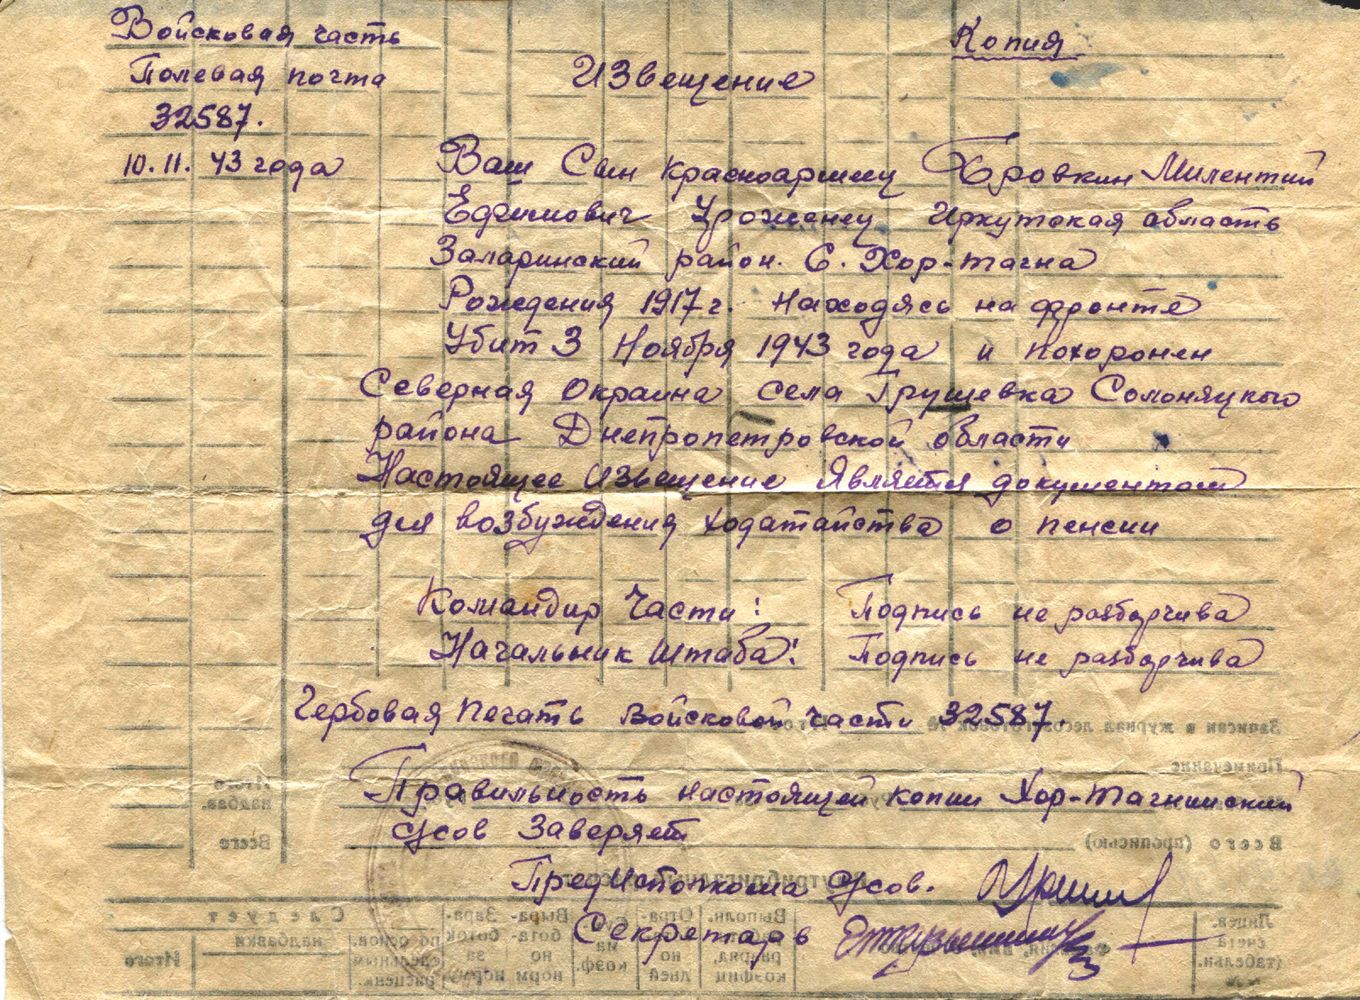 Войсковая часть
Полевая почта
32587.
10.11.43 года
Копия
Извещение
Ваш Сын красноармеец Бровкин Милентий
Ефимович Уроженец Иркутская область
Заларинский район. С. Хор-тагна
Рождения 1917 г. находясь на фронте
Убит 3 Ноября 1943 года и похоронен
Северная Окраина села Грушевка Солоняцкого
района Днепропетровской области
Настоящее Извещение Является документом
для возбуждения ходатайства о пенсии
Командир Части: Подпись не разборчива
Начальник Штаба: Подпись не разборчива
Гербовая Печать Войсковой части 32587.
Правильность настоящей копии Хор-Тагнинский
с/сов Заверяет
Пред Исполкома с/сов.
Секретарь
Записан в журнал
Примечание
Всего (прописью)
Итого
надбав.
Всего
Следует
надбавки
Итого